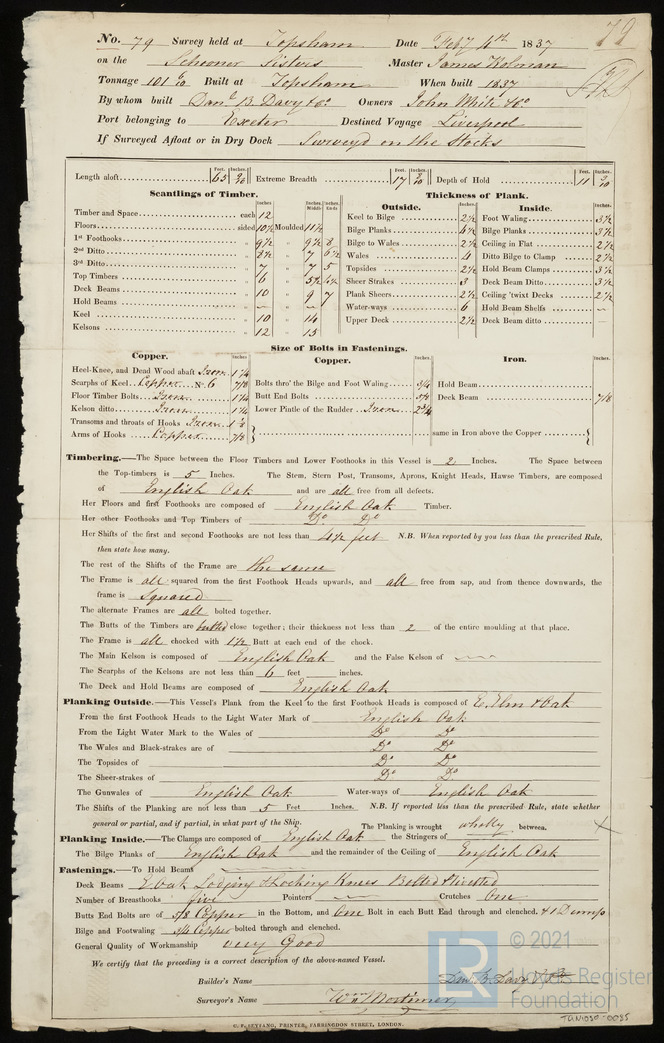 No. 79 Survey held at Topsham Date Feby 11th 1837
79
on the Schooner Sisters Master James Holman
Tonnage 101 6/10 Built at Topsham When built 1837
By whom built Danl. B. Davy & Co Owners John White & Co
Port belonging to Exeter Destined Voyage Liverpool
If Surveyed Afloat or in Dry Dock Surveyd on the Stocks
Feet. Inches. Feet. Inches. Feet. Inches.
Length aloft 65 Extreme Breadth 17 Depth of Hold 11
Scantlings of Timber.
Inches Inches Middle Inches Ends
Timber and Space each 12
Floors sided 10½ Moulded 11½
1st Foothooks „ 9½ „ 9½ 8
2nd Ditto „ 8½ „ 7 6½
3rd Ditto „ 7 „ 7 5
Top Timbers „ 6 „ 5½ 4½
Deck Beams „ 10 „ 9 7
Hold Beams „ — „ — —
Keel „ 10 „ 14
Kelsons „ 12 „ 15
Thickness of Plank.
Outside. Inches Inside. Inches
Keel to Bilge 2½ Foot Waling 3½
Bilge Planks 4½ Bilge Planks 3½
Bilge to Wales 2½ Ceiling in Flat 2½
Wales 4 Ditto Bilge to Clamp 2½
Topsides 2½ Hold Beam Clamps 3½
Sheer Strakes 3 Deck Beam Ditto 3½
Plank Sheers 2½ Ceiling 'twixt Decks 2½
Water-ways 6 Hold Beam Shelfs —
Upper Deck 2½ Deck Beam ditto
Size of Bolts in Fastenings.
Copper. Inches.
Heel-Knee, and Dead Wood abaft Iron 1¼
Scarphs of Keel Copper No. 6 7/8
Floor Timber Bolts Iron 1¼
Kelson ditto Iron 1¼
Transoms and throats of Hooks Iron
Arms of Hooks Copper 7/8
Copper. Inches.
Bolts thro' the Bilge and Foot Waling 3/4
Butt End Bolts 5/8
Lower Pintle of the Rudder Iron 2¾
Iron. Inches.
Hold Beam
Deck Beam 7/8
same in Iron above the Copper
Timbering.—The Space between the Floor Timbers and Lower Foothooks in this Vessel is 2 Inches. The Space between
the Top-timbers is 5 Inches. The Stem, Stern Post, Transoms, Aprons, Knight Heads, Hawse Timbers, are composed
of English Oak and are all free from all defects.
Her Floors and first Foothooks are composed of English Oak Timber.
Her other Foothooks and Top Timbers of Do Do
Her Shifts of the first and second Foothooks are not less than 4½ feet N.B. When reported by you less than the prescribed Rule,
then state how many.
The rest of the Shifts of the Frame are the same
The Frame is all squared from the first Foothook Heads upwards, and all free from sap, and from thence downwards, the
frame is Squared
The alternate Frames are all bolted together.
The Butts of the Timbers are butted close together; their thickness not less than 2 of the entire moulding at that place.
The Frame is all chocked with 1½ Butt at each end of the chock.
The Main Kelson is composed of English Oak and the False Kelson of —
The Scarphs of the Kelsons are not less than 6 feet inches.
The Deck and Hold Beams are composed of English Oak
Planking Outside.—This Vessel's Plank from the Keel to the first Foothook Heads is composed of E. Elm & Oak
From the first Foothook Heads to the Light Water Mark of English Oak
From the Light Water Mark to the Wales of Do Do
The Wales and Black-strakes are of Do Do
The Topsides of Do Do
The Sheer-strakes of Do Do
The Gunwales of English Oak Water-ways of English Oak
The Shifts of the Planking are not less than 5 Feet Inches. N.B. If reported less than the prescribed Rule, state whether
general or partial, and if partial, in what part of the Ship. The Planking is wrought wholly between.
Planking Inside.—The Clamps are composed of English Oak the Stringers of —
The Bilge Planks of English Oak and the remainder of the Ceiling of English Oak
Fastenings.—To Hold Beams —
Deck Beams E oak Lodging & Hocking Knees Bolted & rivetted
Number of Breasthooks five Pointers — Crutches One
Butts End Bolts are of 5/8 Copper in the Bottom, and One Bolt in each Butt End through and clenched. & 1 Dump
Bilge and Footwaling 3/4 Copper bolted through and clenched.
General Quality of Workmanship very Good
We certify that the preceding is a correct description of the above-named Vessel.
Builder's Name Danl. B Davy & Co
Surveyor's Name Wm Mortimer
C. F. SEYFANG, PRINTER, FARRINGDON STREET, LONDON.
LR
© 2021
Lloyd's Register
Foundation